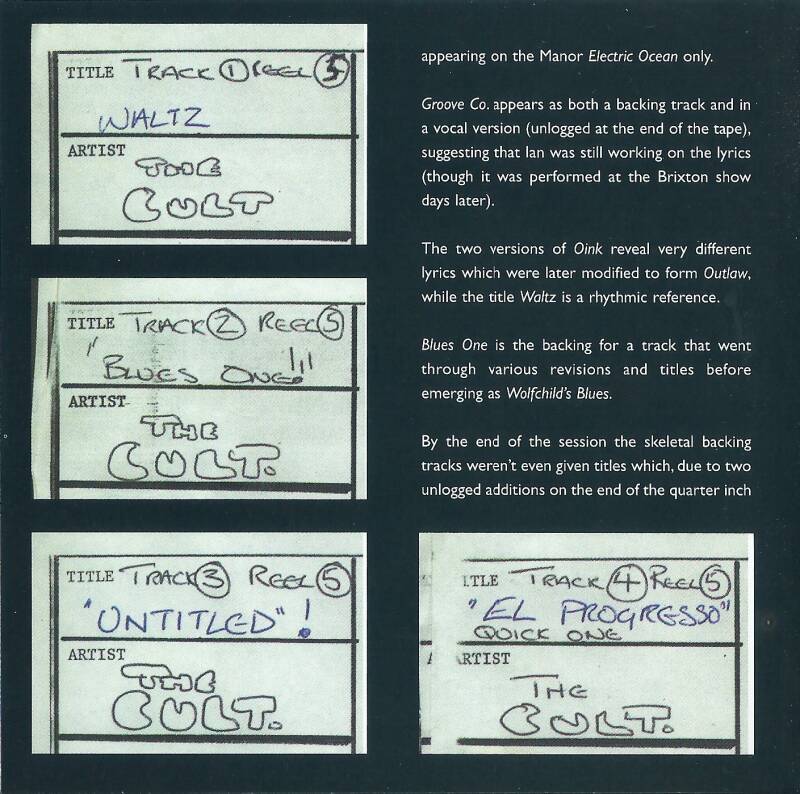 TITLE TRACK 1 REEL 5
WALTZ
ARTIST
THE
CULT
TITLE TRACK 2 REEL 5
"BLUES ONE!!!
ARTIST
THE
CULT.
TITLE TRACK 3 REEL 5
"UNTITLED" !
ARTIST
THE
CULT.
appearing on the Manor Electric Ocean only.
Groove Co. appears as both a backing track and in
a vocal version (unlogged at the end of the tape),
suggesting that Ian was still working on the lyrics
(though it was performed at the Brixton show
days later).
The two versions of Oink reveal very different
lyrics which were later modified to form Outlaw,
while the title Waltz is a rhythmic reference.
Blues One is the backing for a track that went
through various revisions and titles before
emerging as Wolfchild's Blues.
By the end of the session the skeletal backing
tracks weren't even given titles which, due to two
unlogged additions on the end of the quarter inch
TLE TRACK 4 REEL 5
"EL PROGRESSO"
QUICK ONE
ARTIST
THE
CULT.